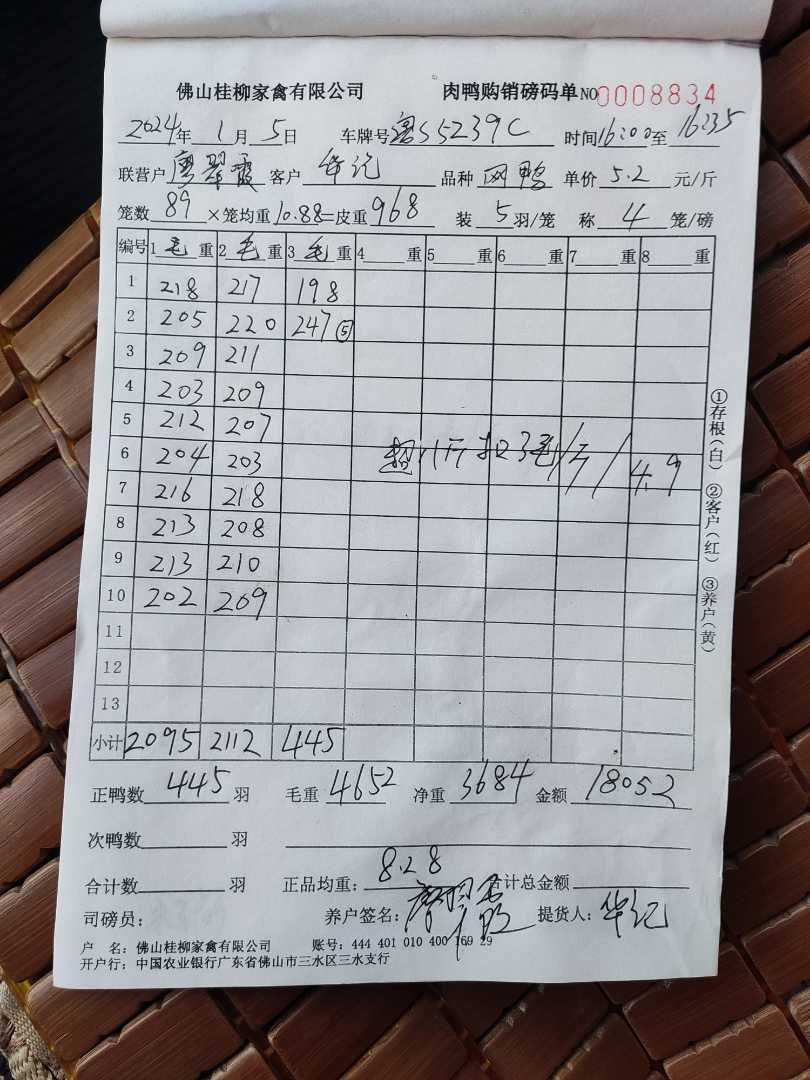 佛山桂柳家禽有限公司 肉鸭购销磅码单 NO 0008834
2024年 1月 5日 车牌号 粤S5239C 时间 16:00 至 16:35
联营户 廖翠霞 客户 华记 品种 网鸭 单价 5.2 元/斤
笼数 89 ×笼均重 10.88 =皮重 968 装 5 羽/笼 称 4 笼/磅
编号 1 毛 重 2 毛 重 3 毛 重 4 重 5 重 6 重 7 重 8 重
1 218 217 198
2 205 220 247 ⑤
3 209 211
4 203 209
5 212 207
6 204 203 超 斤扣3毛/斤/4.9
7 216 218
8 213 208
9 213 210
10 202 209
11
12
13
小计 2095 2112 445
正鸭数 445 羽 毛重 4652 净重 3684 金额 18052
次鸭数 羽
合计数 羽 正品均重: 8.28 合计总金额
司磅员: 养户签名: 提货人: 华记
户 名: 佛山桂柳家禽有限公司 账号: 444 401 010 400 169 29
开户行: 中国农业银行广东省佛山市三水区三水支行
①存根(白) ②客户(红) ③养户(黄)